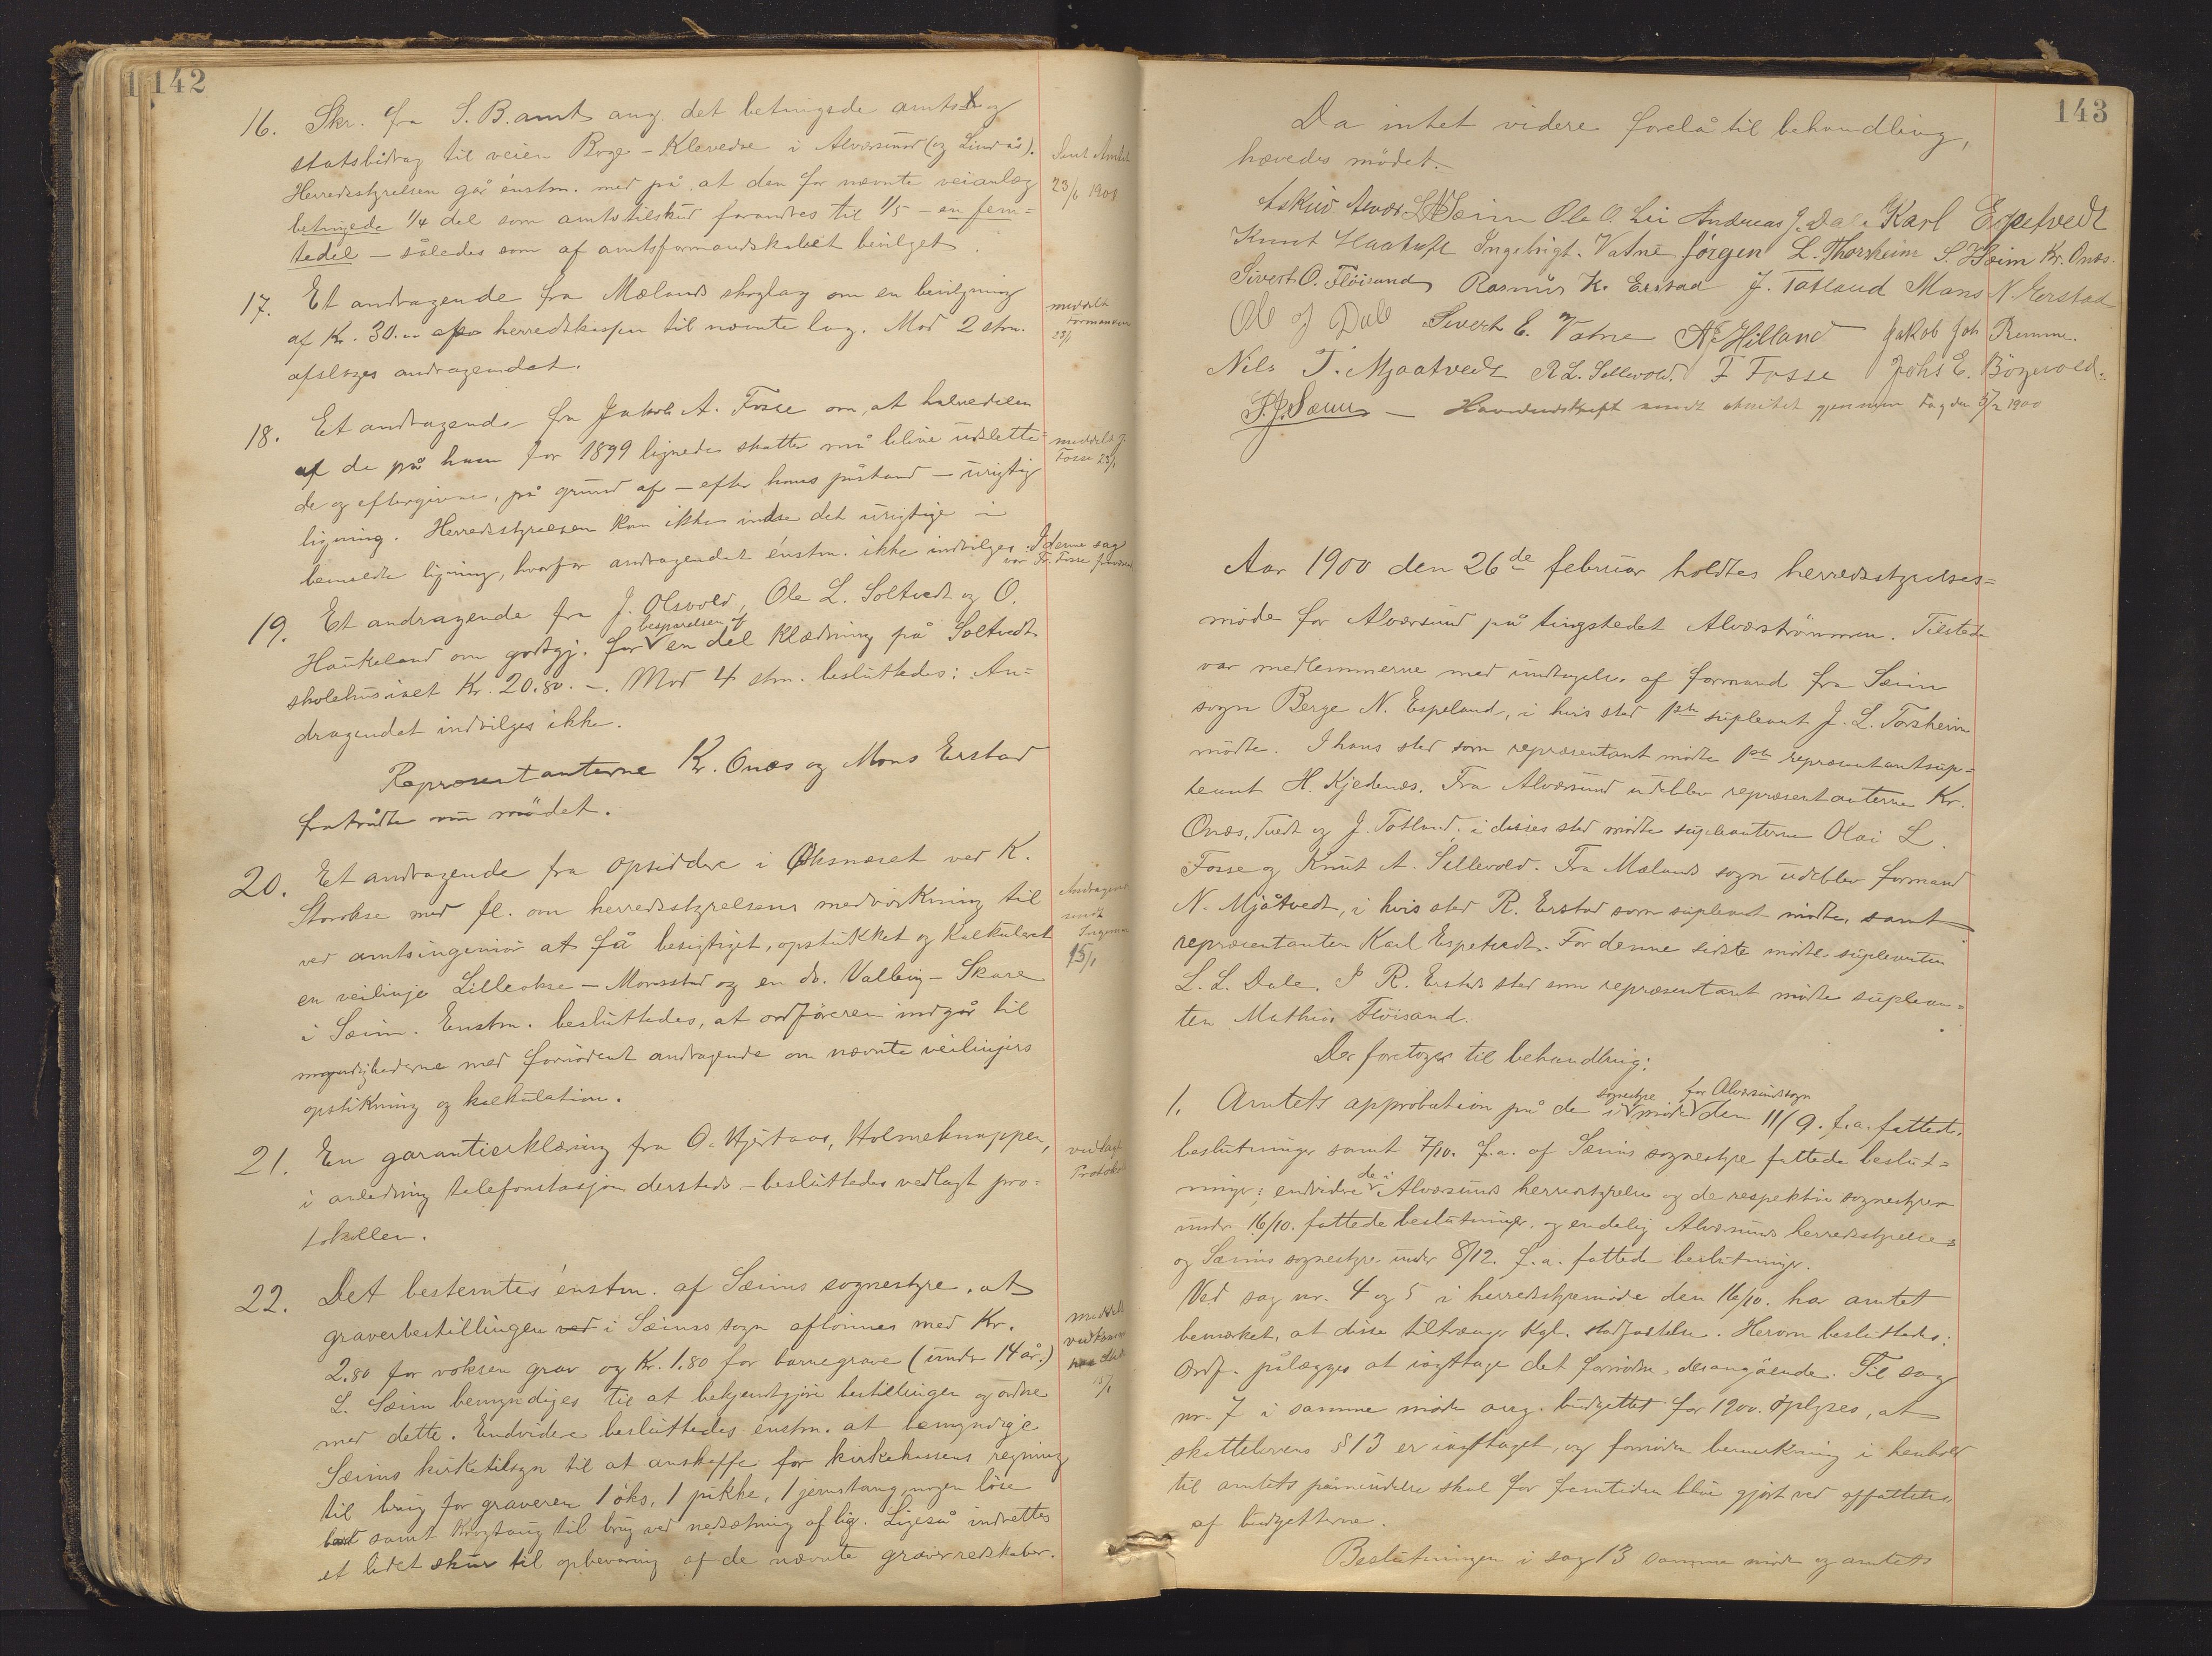 142
16. Skr. fra S. B. amt ang. det betingede amts og
statsbidrag til veien Boge - Klevedse i Alversund (og Lindås).
Herredsstyrelsen går énstm. med på at den for nævnte veianlæg
betingede 1/4 del som amtstilskud forandres til 1/5 - en fem=
tedel - således som af amtsformandskabet bevilget.
Sent Amtet
23/1 1900
17. Et andragende fra Mælands skoglag om en bevilgning
af Kr. 30.00 af herredskassen til nævnte lag. Mod 2 stm.
afslåges andragendet.
meddelt
formanden
23/1
18. Et andragende fra Jakob A. Fosse om, at halvedelen
af de på ham for 1899 lignede skatter må blive udslette=
de og eftergivne, på grund af - efter hans påstand - urigtig
ligning. Herredsstyrelsen kan ikke indse det urigtige i
bemeldte ligning, hvorfor andragendet énstm. ikke indvilges. I denne sag
var Fr. Fosse
meddelt J.
Fosse 23/1
19. Et andragende fra J. Olsvold, Ole L. Soltvedt og O.
Haukeland om godtgj. for besparelsen af en del klædning på Soltvedt
skolehusivet Kr. 20.80.-. Mod 4 stm. besluttedes: An=
dragendet indvilges ikke.
Repræsentanterne Kr. Onæs og Mons Erstad
fratrådte nu mødet.
20. Et andragende fra opsiddere i Oksnæset ved K.
Storokse med fl. om herredsstyrelsens medvirkning til
ved amtsingeniør at få besigtiget, opstukket og kalkuleret
en veilinje Lilleokse - Monsstad og en do. Valbeig - Skare
i Sæim. Enstm. besluttedes, at ordføreren indgår til
myndighederne med fornødent andragende om nævnte veilinjers
opstikning og kalkulation.
Andragend
sendt
Ingeniør
15/1
21. En garantierklæring fra O. Hjertaas, Holmeknappen,
i anledning telefonstasjon dersteds - besluttedes vedlagt pro=
tokollen.
vedlagt
Protokol
22. Det bestemtes énstm. af Sæims sognestyre, at
graverbestillingen ved i Sæims sogn aflønnes med Kr.
2.80 for voksen grav og Kr. 1.80 for barnegrave (under 14 år.)
L. Sæim bemyndiges til at bekjendtgjøre bestillingen og ordne
med dette. Endvidere besluttedes enstm. at bemyndige
Sæims kirketilsyn til at anskaffe for kirkekassens regning
til brug for graveren 1 øks, 1 pikke, 1 jernstang, nogen løse
bord samt tougtaug til brug ved nedsætning af lig. Ligeså indrettes
et lidet skur til opbevaring af de nævnte graverredskaber.
15/1
143
Da intet videre forelå til behandling,
hævedes mødet.
Askild Alvær L. N. Sæim Ole O. Lii Andreas J. Dale Karl Espetvedt
Knut Haatuft Ingebrigt. Vatne Jörgen L. Thorsheim S. Sæim Kr. Onæs.
Sivert O. Fløisand Rasmus K. Erstad J. Totland Mons N. Erstad
Ole J Dale Sivert E. Vatne A. Hilland Jakob Joh Remme.
Nils T. Mjaatvedt R L. Sellevold. F Fosse Johs E. Bøgevold.
5/2 1900
Aar 1900 den 26de februar holdtes herredsstyrelses=
møde for Alversund på tingstedet Alverstrømmen. Tilstede
var medlemmerne med undtagelse af formand fra Sæim
sogn Berge N. Espeland, i hvis sted 1ste supleant J. L. Torsheim
mødte. I hans sted som repræsentant mødte 1ste repræsentantsup=
leant H. Kjedenæs. Fra Alversund udeblev repræsentanterne Kr.
Onæs, Tvedt og J. Totland, i disses sted mødte supleanterne Olai L.
Fosse og Knut A. Sellevold. Fra Mælands sogn udeblev formand
N. Mjåtvedt, i hvis sted R. Erstad som supleant mødte, samt
repræsentanten Karl Espetvedt. For denne sidste mødte supleanten
L. L. Dale. I R. Erstads sted som repræsentant mødte suplean=
ten Mathias Fløisand.
Der foretoges til behandling:
1. Amtets approbation på de i sognestyre møde for Alversund sogn den 11/9. f. a. fattede
beslutninger samt 7/10. f. a. af Sæims sognestyre fattede beslut=
ninger; endvidere de i Alversunds herredsstyrelse og de respektive sognestyrer
under 16/10. fattede beslutninger, og endelig Alversunds herredsstyrelses
og Sæims sognestyre under 8/12. f. a. fattede beslutninger.
Ved sag nr. 4 og 5 i herredsstyremøde den 16/10. har amtet
bemærket, at disse tiltrænger kgl. stadfæstelse. Herom besluttedes:
Ordf. pålægges at iagttage det fornødne desangående. Til sag
nr. 7 i samme møde ang. budgettet for 1900. oplyses, at
skattelovens § 13 er iagttaget, og fornøden bemærkning i henhold
til amtets påmindelse skal for femtiden blive gjort ved affattelse
af budgetterne.
Beslutningen i sag 13 samme møde og amtets